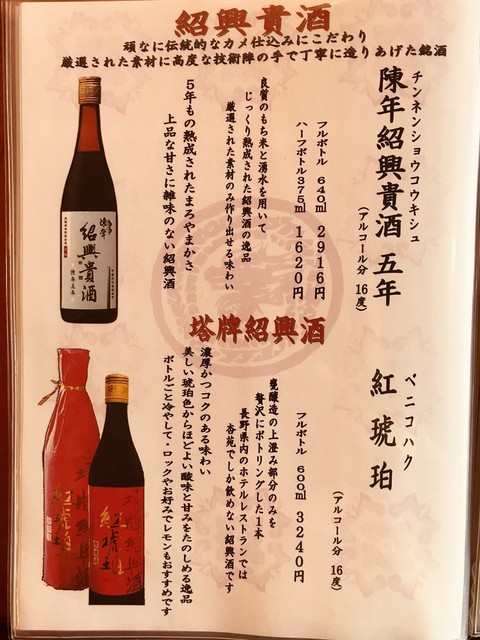 紹興貴酒
頑なに伝統的なカメ仕込みにこだわり
厳選された素材に高度な技術陣の手で丁寧に造りあげた銘酒
チンネンショウコウキシュ
陳年紹興貴酒 五年
(アルコール分 16度)
フルボトル 640ml 2916円
ハーフボトル375ml 1620円
良質のもち米と湧水を用いて
じっくり熟成された紹興酒の逸品
厳選された素材のみ作り出せる味わい
5年もの熟成されたまろやまかさ
上品な甘さに雑味のない紹興酒
陳年
紹興貴酒
陳年五年
塔牌紹興酒
ベニコハク
紅琥珀
(アルコール分 16度)
フルボトル 600ml 3240円
甕醸造の上澄み部分のみを
贅沢にボトリングした1本
長野県内のホテルレストランでは
杏苑でしか飲めない紹興酒です
濃厚かつコクのある味わい
美しい琥珀色からほどよい酸味と甘みをたのしめる逸品
ボトルごと冷やして・ロックやお好みでレモンもおすすめです
紅琥珀
紅琥珀